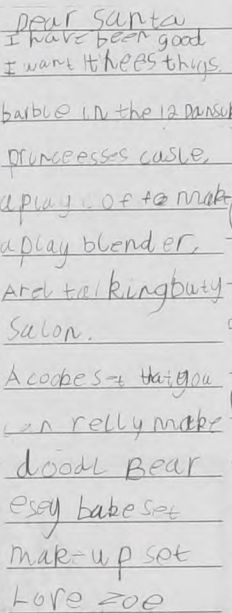 Dear Santa
I have been good
I want thees thigs.
barble in the 12 Dansu
princeesses casle,
a play of to mak
a play blender,
Arel talkingbuty
Salon.
A coobes t that you
can relly make
doodl Bear
esey bake set
make-up set
Love zoe